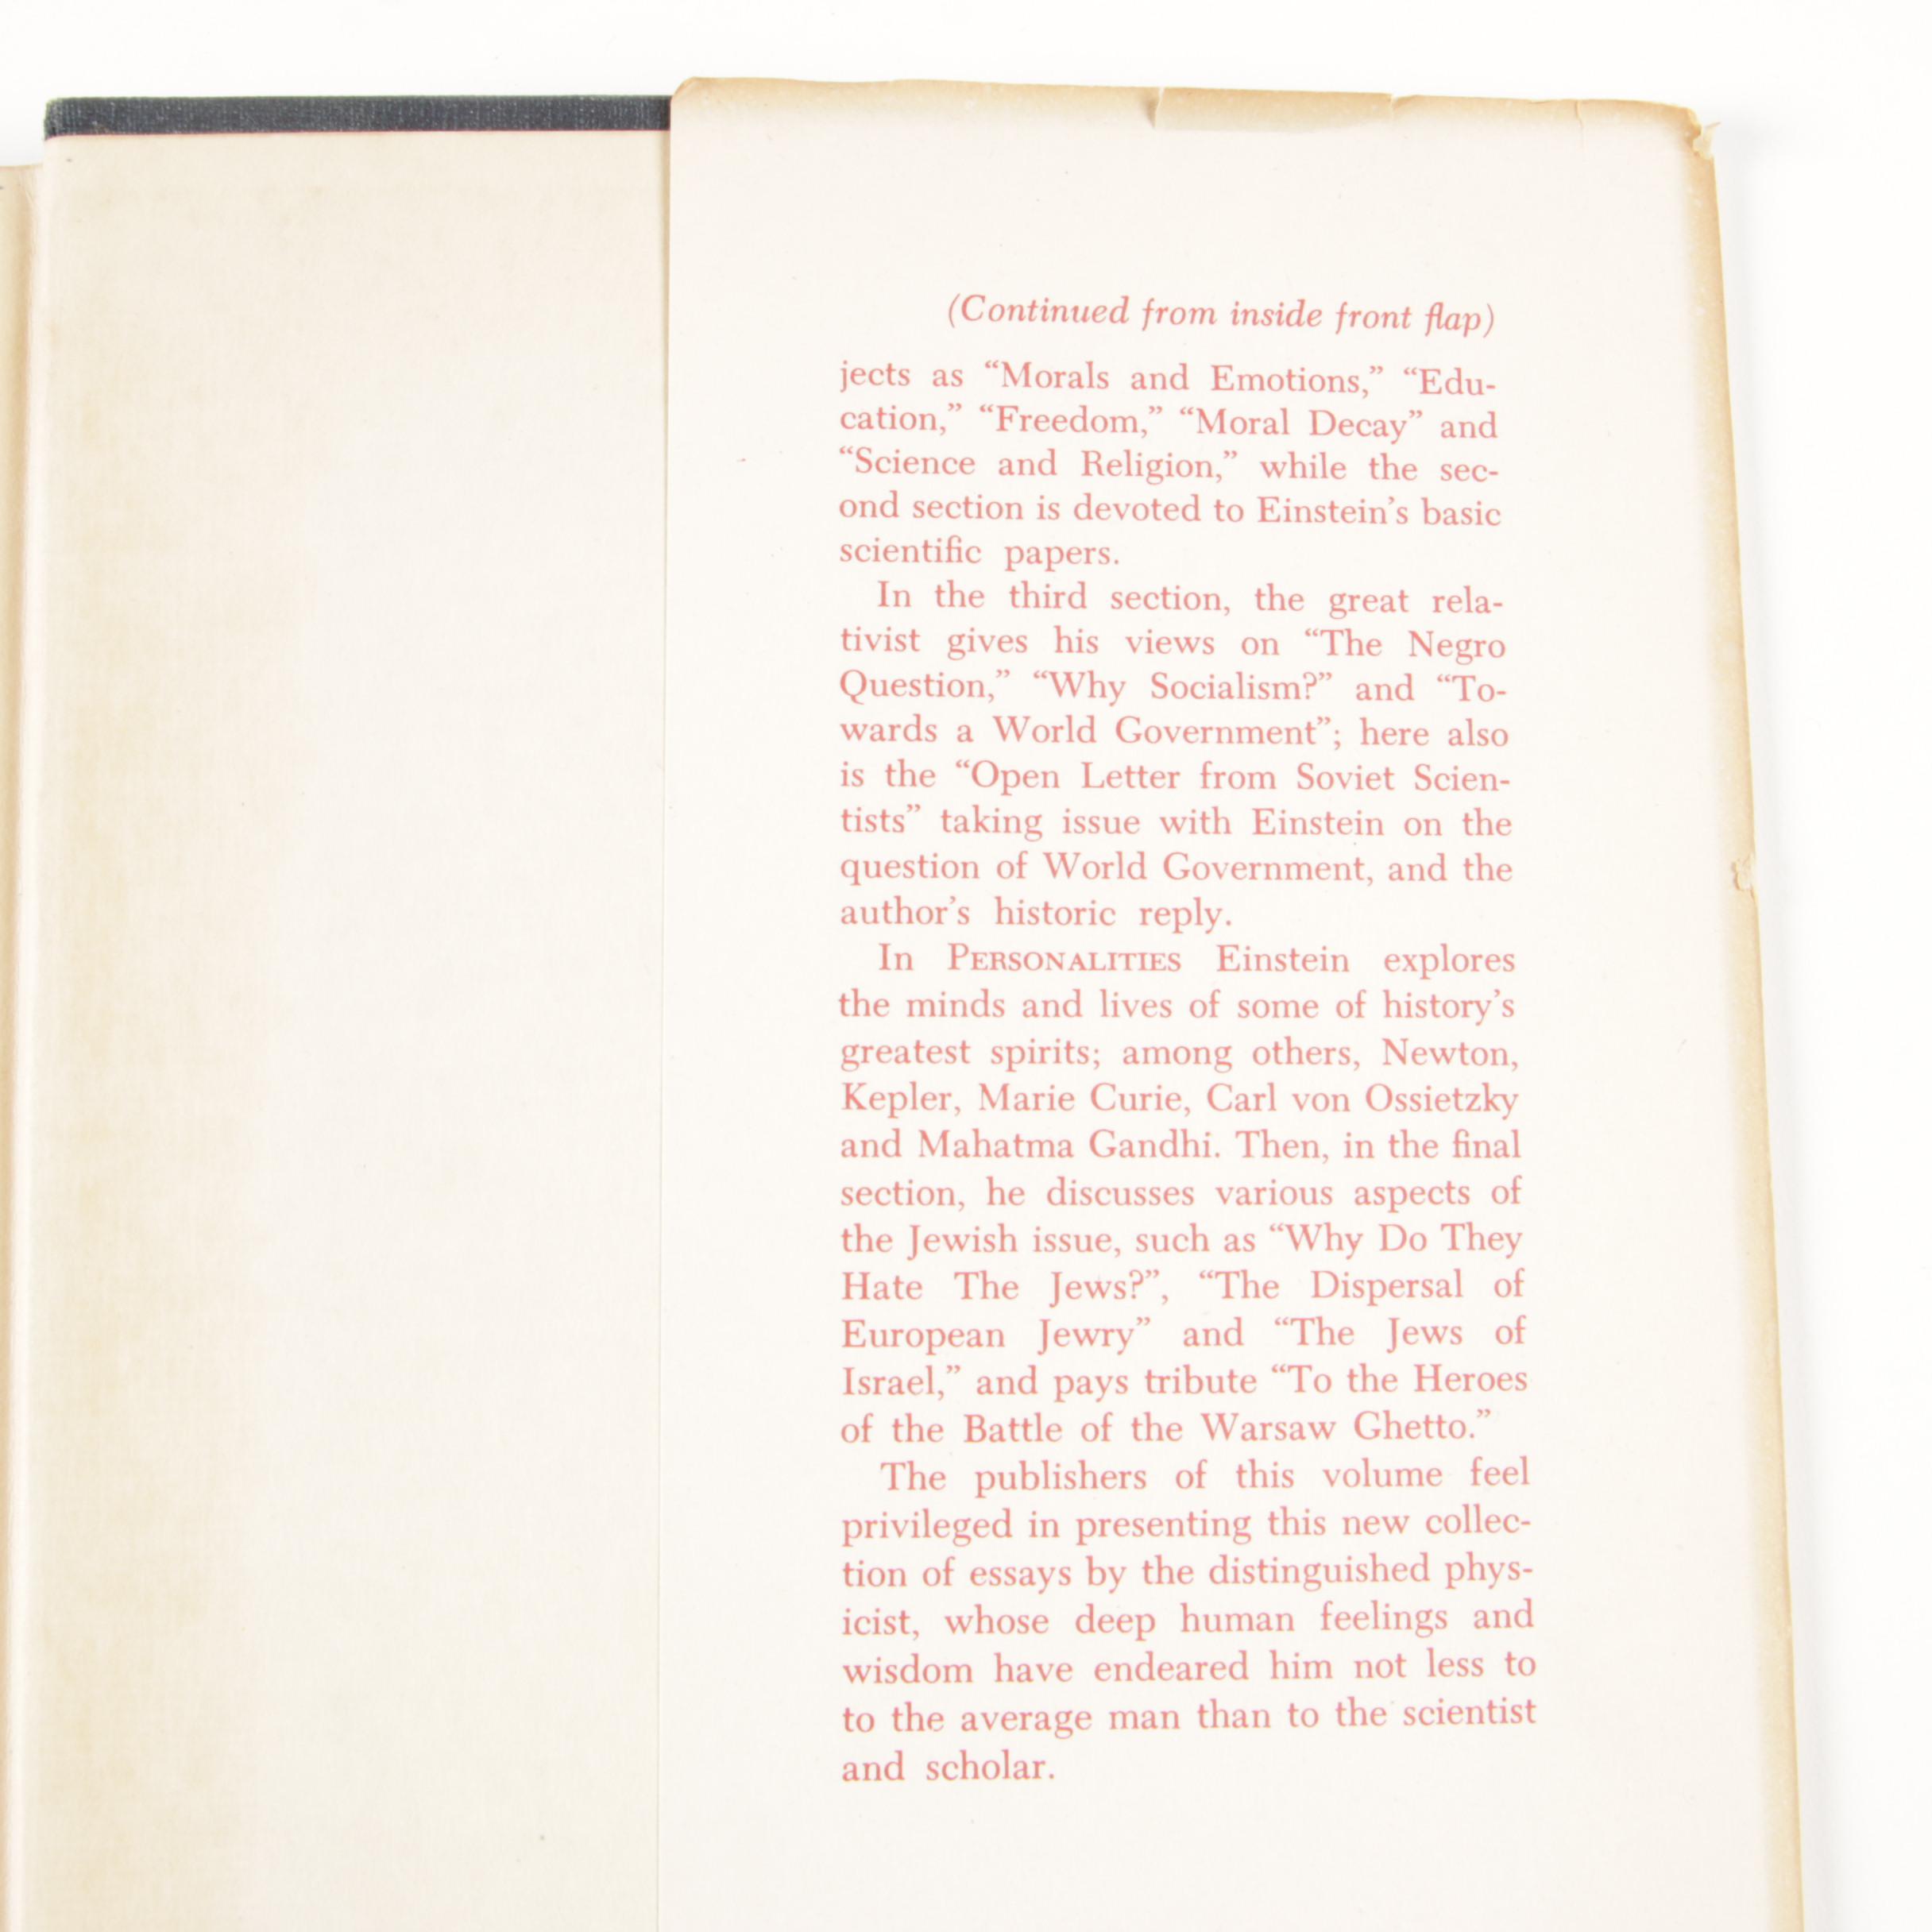 (Continued from inside front flap)
jects as “Morals and Emotions,” “Edu-
cation,” “Freedom,” “Moral Decay” and
“Science and Religion,” while the sec-
ond section is devoted to Einstein’s basic
scientific papers.
In the third section, the great rela-
tivist gives his views on “The Negro
Question,” “Why Socialism?” and “To-
wards a World Government”; here also
is the “Open Letter from Soviet Scien-
tists” taking issue with Einstein on the
question of World Government, and the
author’s historic reply.
In PERSONALITIES Einstein explores
the minds and lives of some of history’s
greatest spirits; among others, Newton,
Kepler, Marie Curie, Carl von Ossietzky
and Mahatma Gandhi. Then, in the final
section, he discusses various aspects of
the Jewish issue, such as “Why Do They
Hate The Jews?”, “The Dispersal of
European Jewry” and “The Jews of
Israel,” and pays tribute “To the Heroes
of the Battle of the Warsaw Ghetto.”
The publishers of this volume feel
privileged in presenting this new collec-
tion of essays by the distinguished phys-
icist, whose deep human feelings and
wisdom have endeared him not less to
to the average man than to the scientist
and scholar.